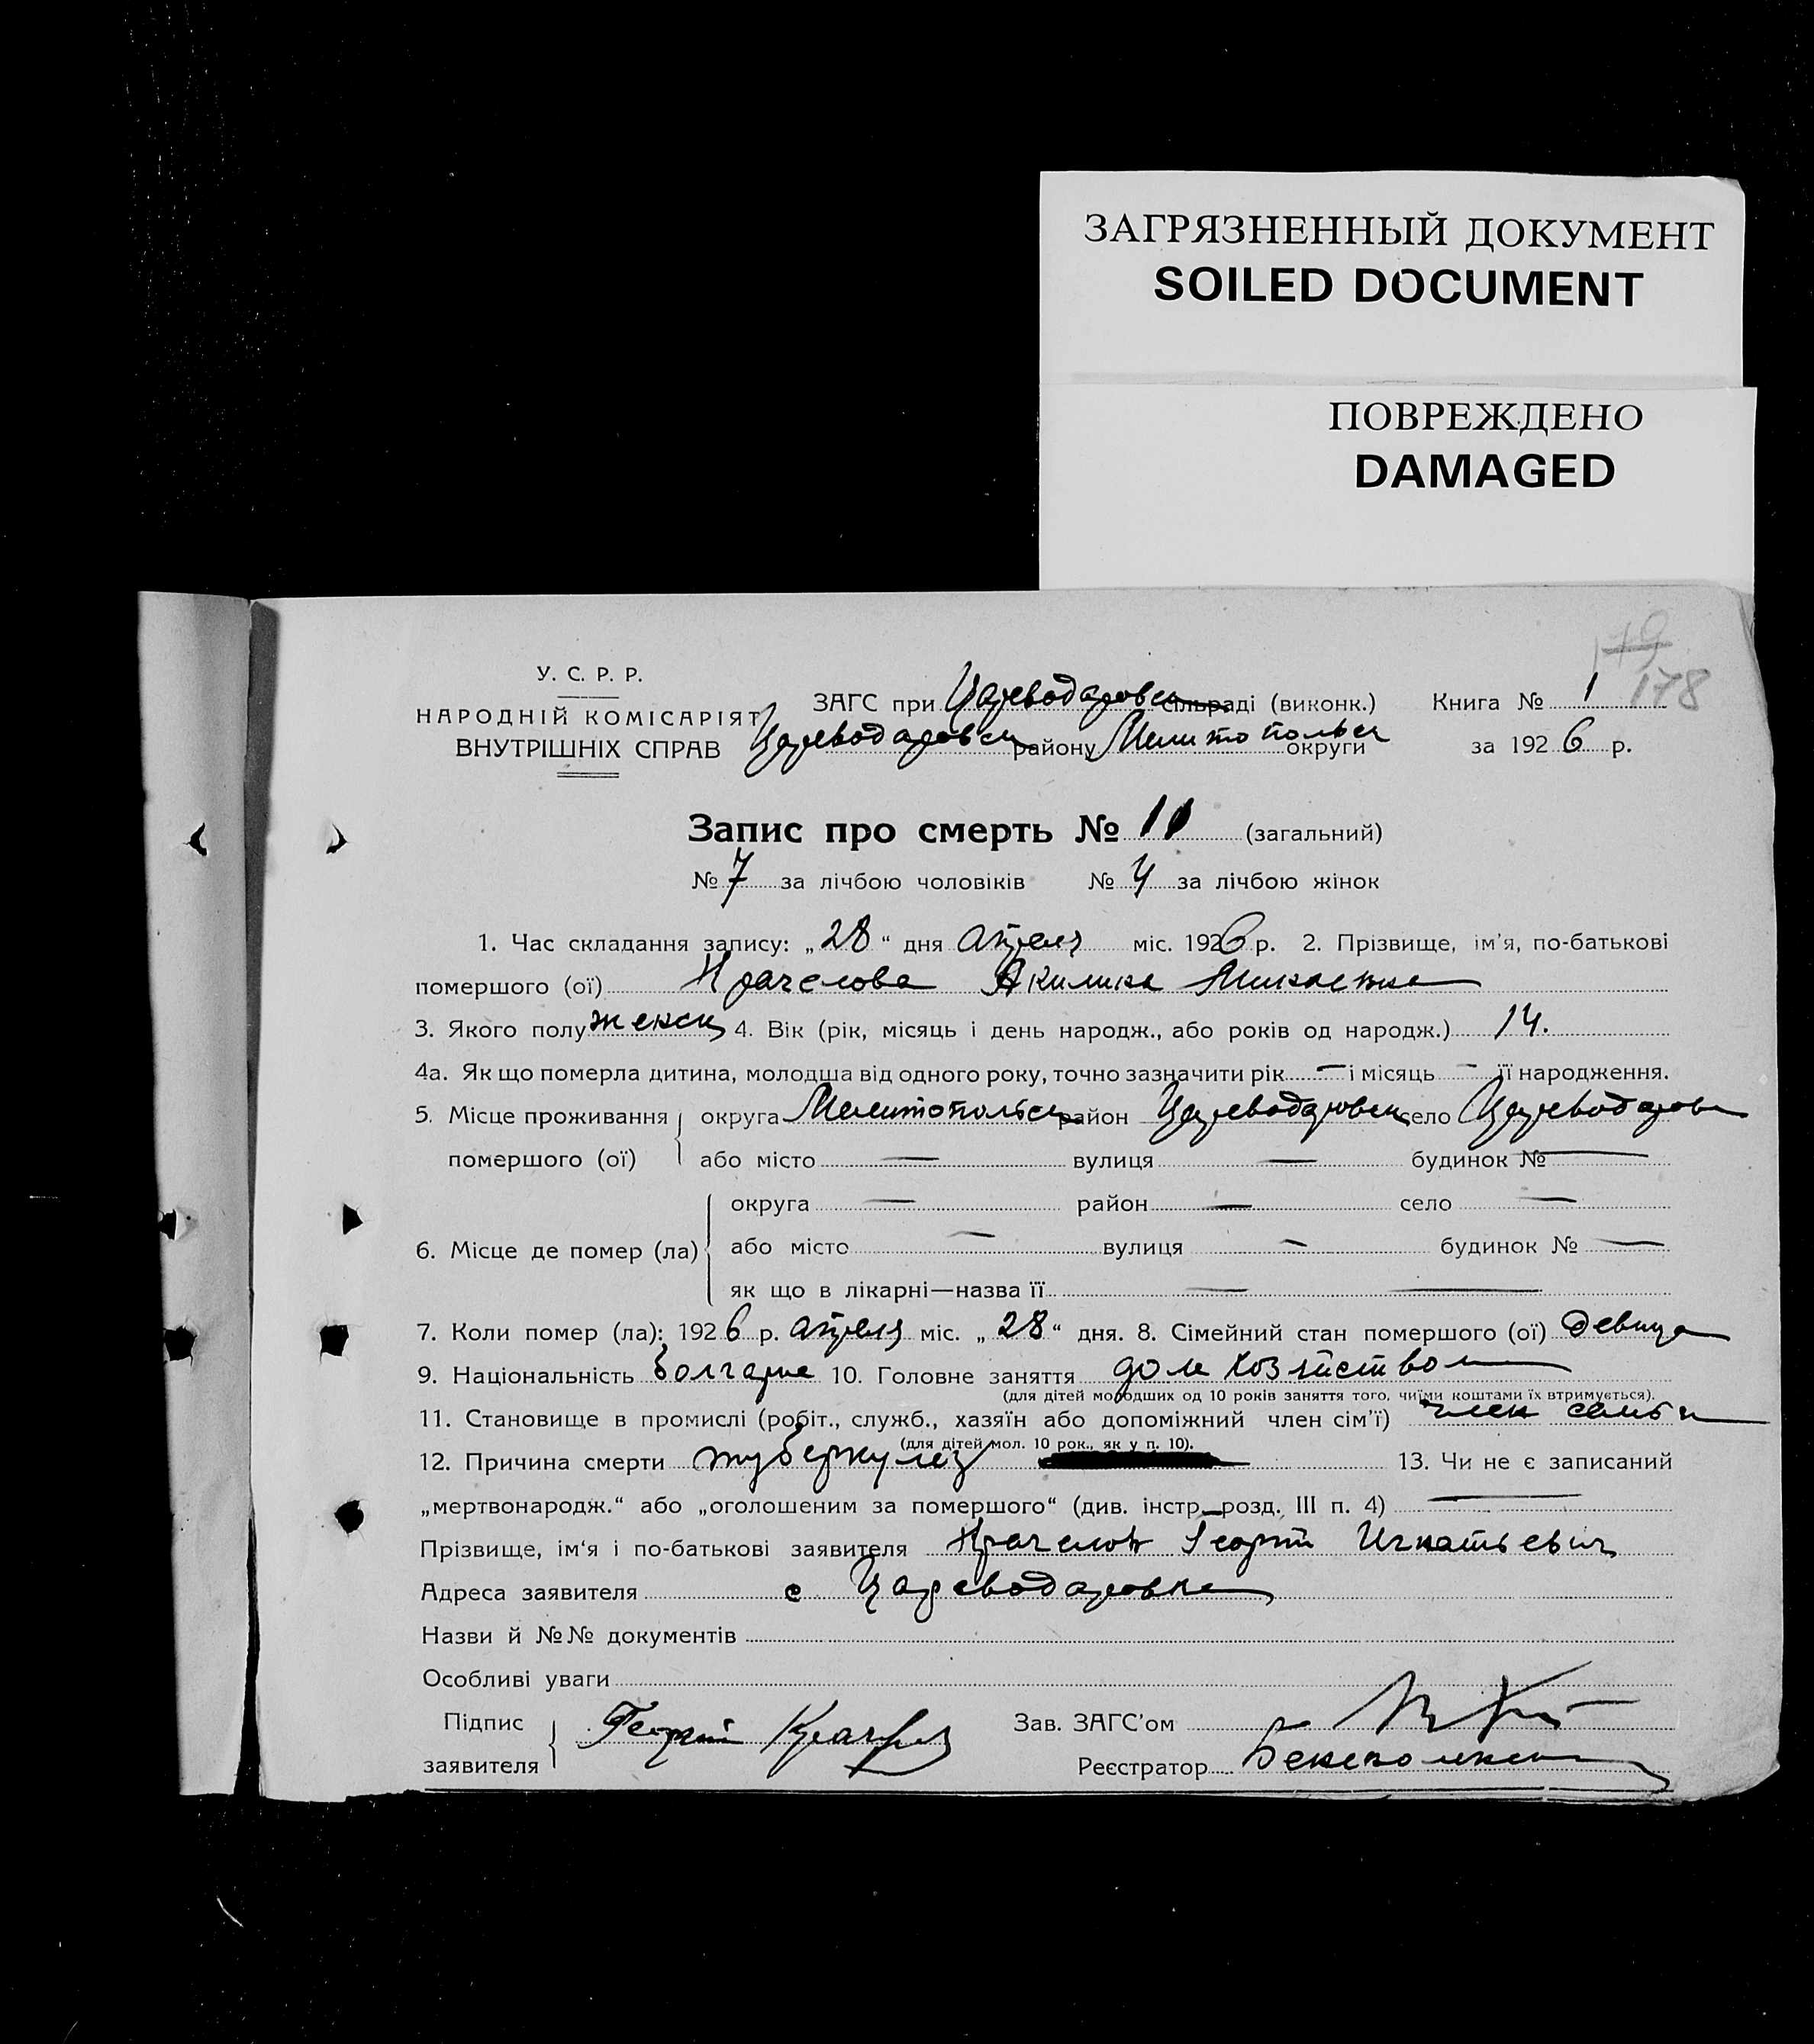 ЗАГРЯЗНЕННЫЙ ДОКУМЕНТ
SOILED DOCUMENT
ПОВРЕЖДЕНО
DAMAGED
179
178
У. С. Р. Р.
НАРОДНІЙ КОМІСАРІЯТ
ВНУТРІШНІХ СПРАВ
ЗАГС при Цареводаровск сільраді (виконк.) Книга № 1
Цареводаровск району Мелитопольск округи за 1926 р.
Запис про смерть № 11 (загальний)
№ 7 за лічбою чоловіків № 4 за лічбою жінок
1. Час складання запису: „28“ дня апреля міс. 1926 р. 2. Прізвище, ім'я, по-батькові
помершого (ої) Крачелова Акилина
3. Якого полу женск 4. Вік (рік, місяць і день народж., або років од народж.) 14.
4а. Як що померла дитина, молодша від одного року, точно зазначити рік — і місяць — її народження.
5. Місце проживання округа Мелитопольск район Цареводаровск село Цареводаровк
помершого (ої) або місто — вулиця — будинок № —
округа — район — село —
6. Місце де помер (ла) або місто — вулиця — будинок № —
як що в лікарні—назва її — —
7. Коли помер (ла): 1926 р. апреля міс. „28“ дня. 8. Сімейний стан помершого (ої) девица
9. Національність болгарка 10. Головне заняття дом хозяйством
(для дітей молодших од 10 років заняття того, чиїми коштами їх втримується).
11. Становище в промислі (робіт., служб., хазяїн або допоміжний член сім'ї) член семьи
(для дітей мол. 10 рок., як у п. 10).
12. Причина смерти туберкулез 13. Чи не є записаний
„мертвонародж.“ або „оголошеним за помершого“ (див. інстр. розд. III п. 4) —
Прізвище, ім'я і по-батькові заявителя Крачелов Георгий Игнатьевич
Адреса заявителя с Цареводаровка
Назви й №№ документів
Особливі уваги
Підпис заявителя Георгий Зав. ЗАГС'ом
Реєстратор